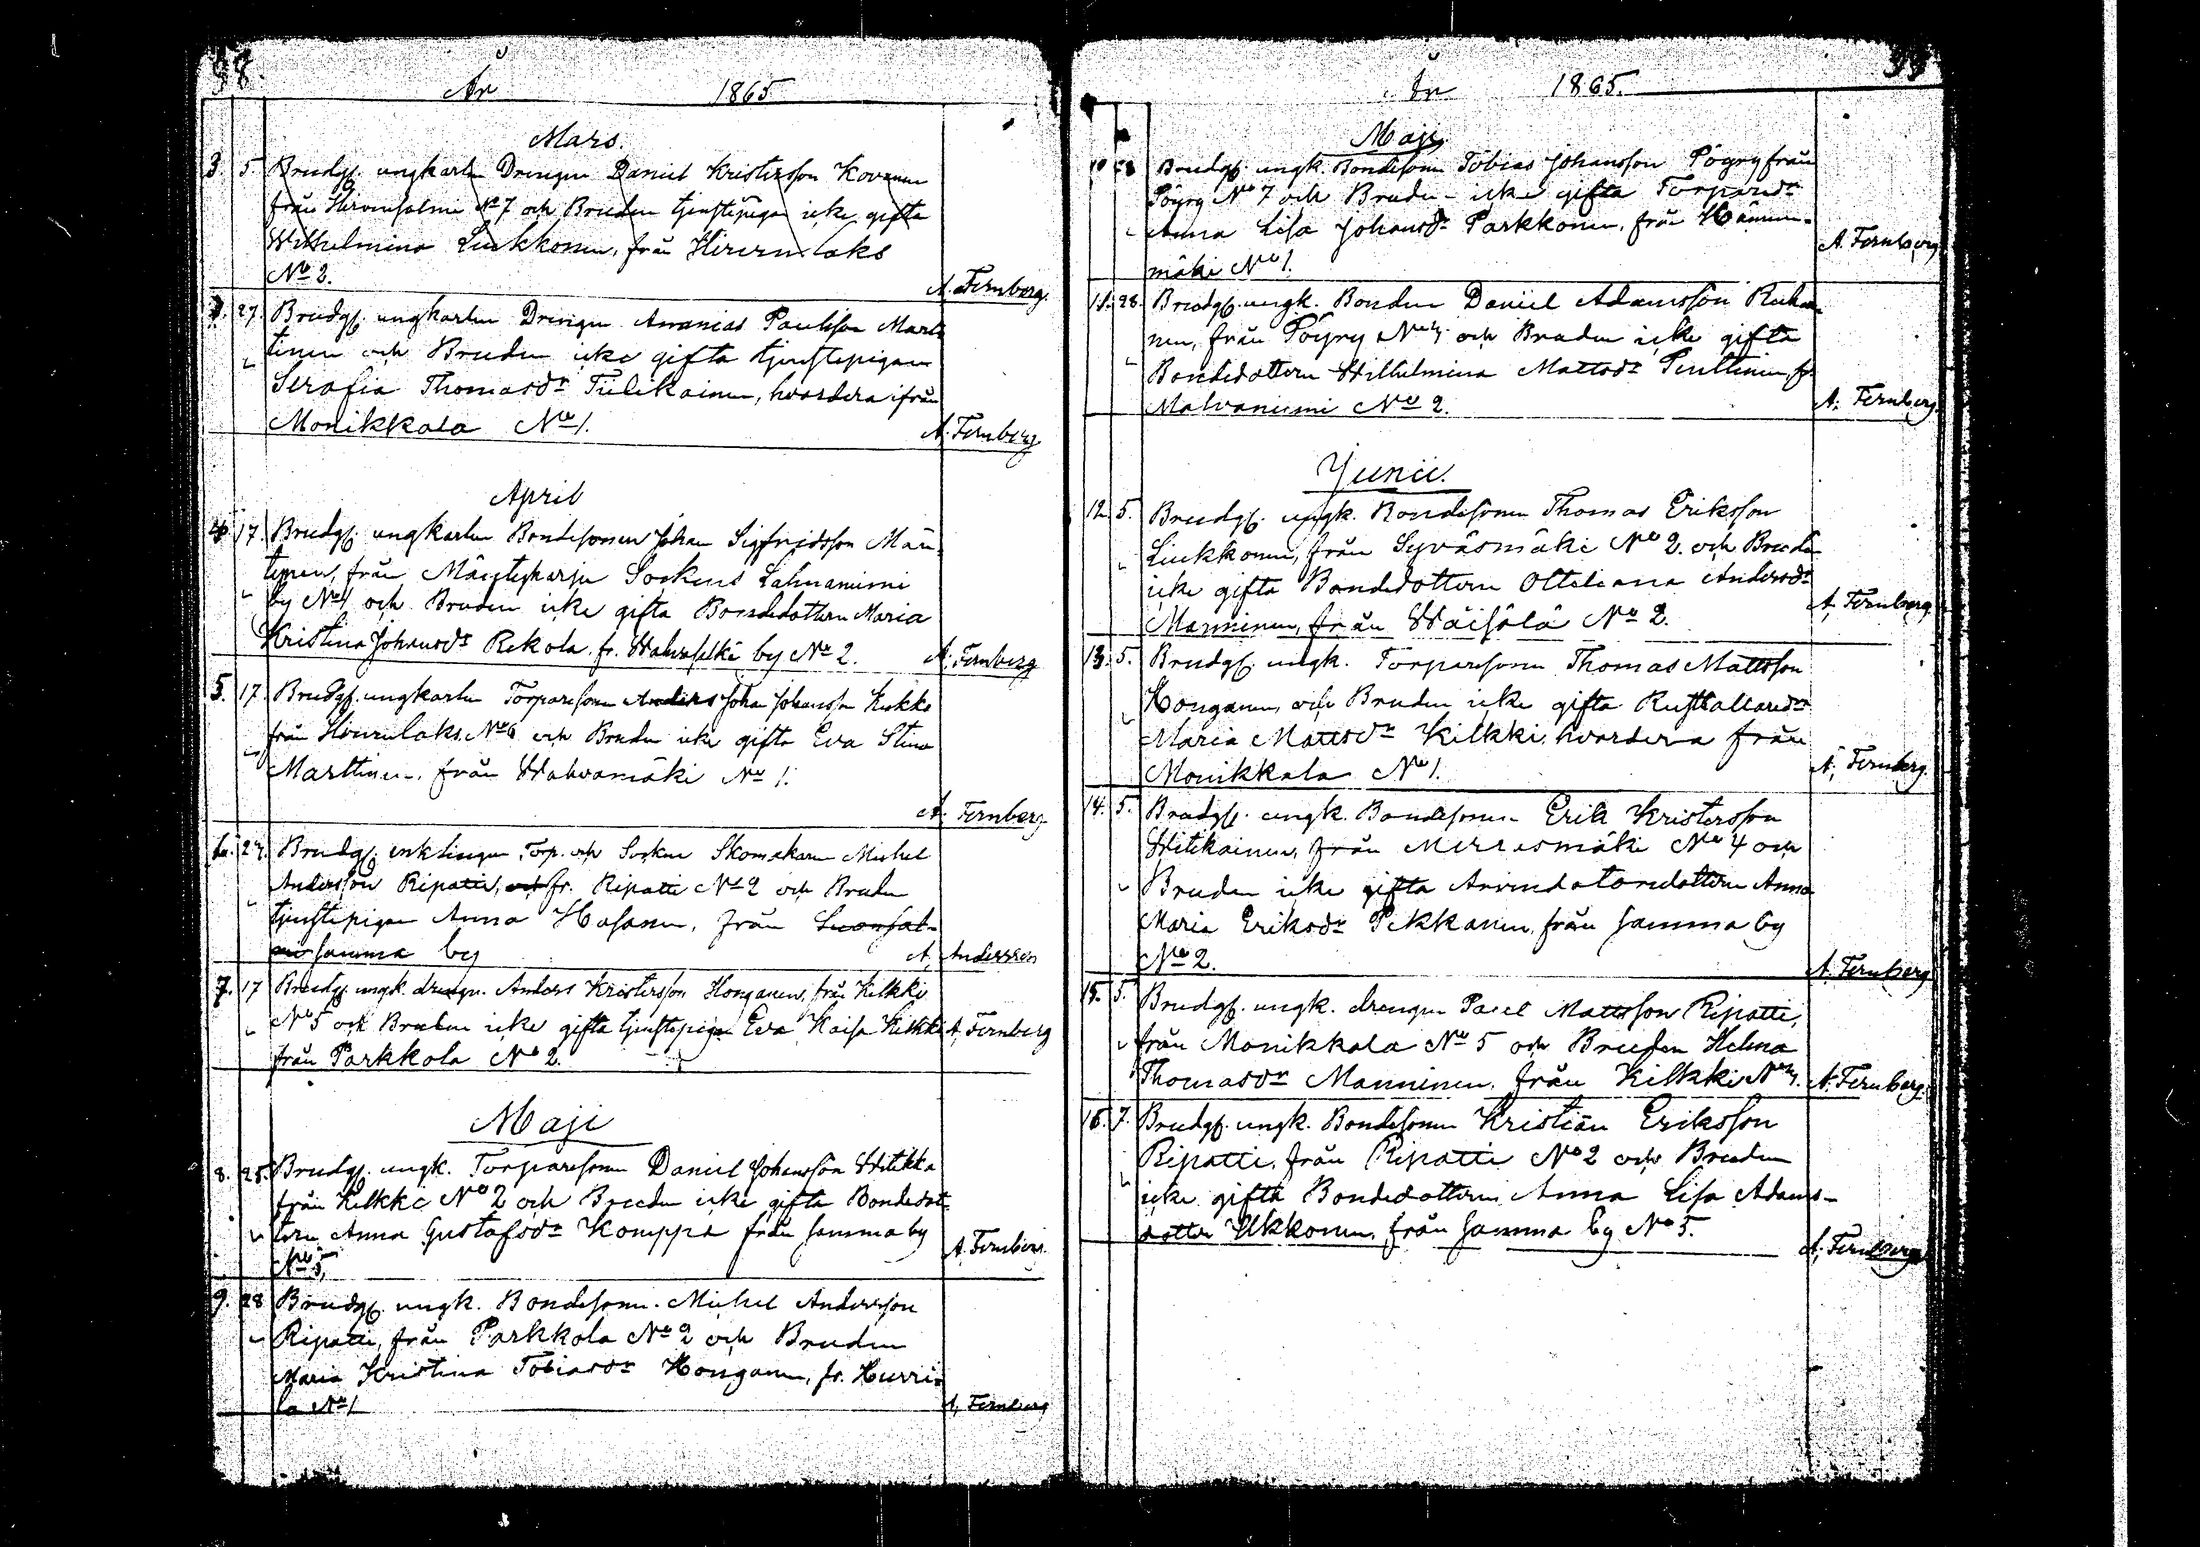 98.
År 1865
Mars.
3. 5. Brudg. ungkarlen Drengen Daniel Kristersson Kovanen
från Hirvensalmi No 7 och Bruden tjenstepigan icke gifta
Wilhelmina Liukkonen, från Hirvenlaks
No 2. A. Fernberg.
3. 27. Brudg. ungkarlen Drengen Ananias Paulsson Mart-
tinen och Bruden icke gifta tjenstepigan
Serafia Thomasdr Tulikainen, hvardera ifrån
Monikkala No 1. A. Fernberg
April
4. 17. Brudg. ungkarlen Bondesonen Johan Sigfridsson Män-
tynen, från Mäntyharju Sockens Lahnaniemi
by No 1 och Bruden icke gifta Bondedottern Maria
Kristina Johansdr Rekola fr. Wahvaselkä by No 2. A. Fernberg
5. 17. Brudg. ungkarlen Torparesonen Anders Joha Johansson Kukko
från Hirvenlaks No 6 och Bruden icke gifta Eva Stina
Marttinen, från Wahvamäki No 1.
A. Fernberg
6. 27. Brudg. enklingen Torp. och Socken Skomakaren Michel
Andersson Ripatti, och fr. Ripatti No 2 och Bruden
tjenstepigan Anna Hasanen, från Suonsal-
mi samma by A. Andersson
7. 17 Brudg. ungk. drengen Anders Kristersson Honganen, från Kilkki
No 5 och Bruden icke gifta tjenstepigan Eva Kaisa Kilkki A. Fernberg
från Parkkola No 2.
Maji
8. 25. Brudg. ungk. Torparesonen Daniel Johansson Witikka
från Kilkki No 2 och Bruden icke gifta Bondedot-
tern Anna Gustafsdr Komppa från samma by
No 5, A. Fernberg.
9. 28 Brudg. ungk. Bondesonen Michel Andersson
Ripatti, från Parkkola No 2 och Bruden
Maria Kristina Tobiasdr Honganen, fr. Hurri-
la No 1 A. Fernberg
99
År 1865.
Maji
10 28 Brudg. ungk. Bondesonen Tobias Johansson Pögry från
Pögry No 7 och Bruden icke gifta Torparedr
Anna Lisa Johansdr Parkkonen, från Hännin-
mäki No 1. A. Fernberg
11. 28. Brudg. ungk. Bonden Daniel Adamsson Ruha-
nen, från Pögry No 4 och Bruden icke gifta
Bondedottern Wilhelmina Mattsdr Penttinen, fr
Malvaniemi No 2. A. Fernberg.
Junii.
12. 5. Brudg. ungk. Bondesonen Thomas Eriksson
Liukkonen, från Syväsmäki No 2. och Bruden
icke gifta Bondedottern Otteliana Andersdr
Manninen, från Wäisälä No 2. A. Fernberg
13. 5. Brudg. ungk. Torparesonen Thomas Mattsson
Honganen, och Bruden icke gifta Rusthållaredr
Maria Mattsdr Kilkki, hvardera från
Monikkala No 1. A. Fernberg.
14. 5. Brudg. ungk. Bondesonen Erik Kristersson
Witikainen, från Merrasmäki No 4 och
Bruden icke gifta Arrendatoredottern Anna
Maria Eriksdr Pekkanen, från samma by
No 2. A. Fernberg
15. 5. Brudg. ungk. drengen Pavel Mattsson Ripatti,
från Monikkala No 5 och Bruden Helena
Thomasdr Manninen, från Kilkki No 4. A. Fernberg.
16. 7. Brudg. ungk. Bondesonen Kristian Eriksson
Ripatti, från Ripatti No 2 och Bruden
icke gifta Bondedottern Anna Lisa Adams-
dotter Ukkonen, från samma by No 5. A. Fernberg